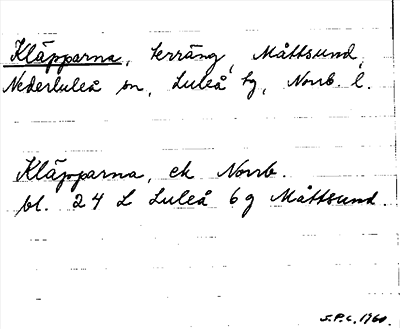 Kläpparna, terräng, Måttsund,
Nederluleå sn, Luleå tg, Norrb. l.
Kläpparna, ek Norrb.
bl. 24 L Luleå 6 g Måttsund.
S.P.C. 1960.